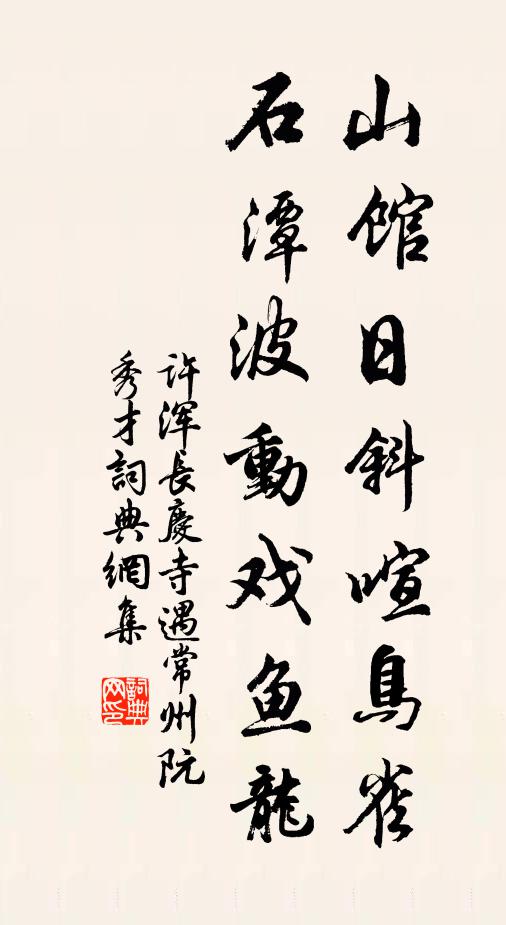 山馆日斜喧鳥雀
石潭波動戏鱼龍
许浑長慶寺遇常州阮
秀才詞典網集
詞典
网印